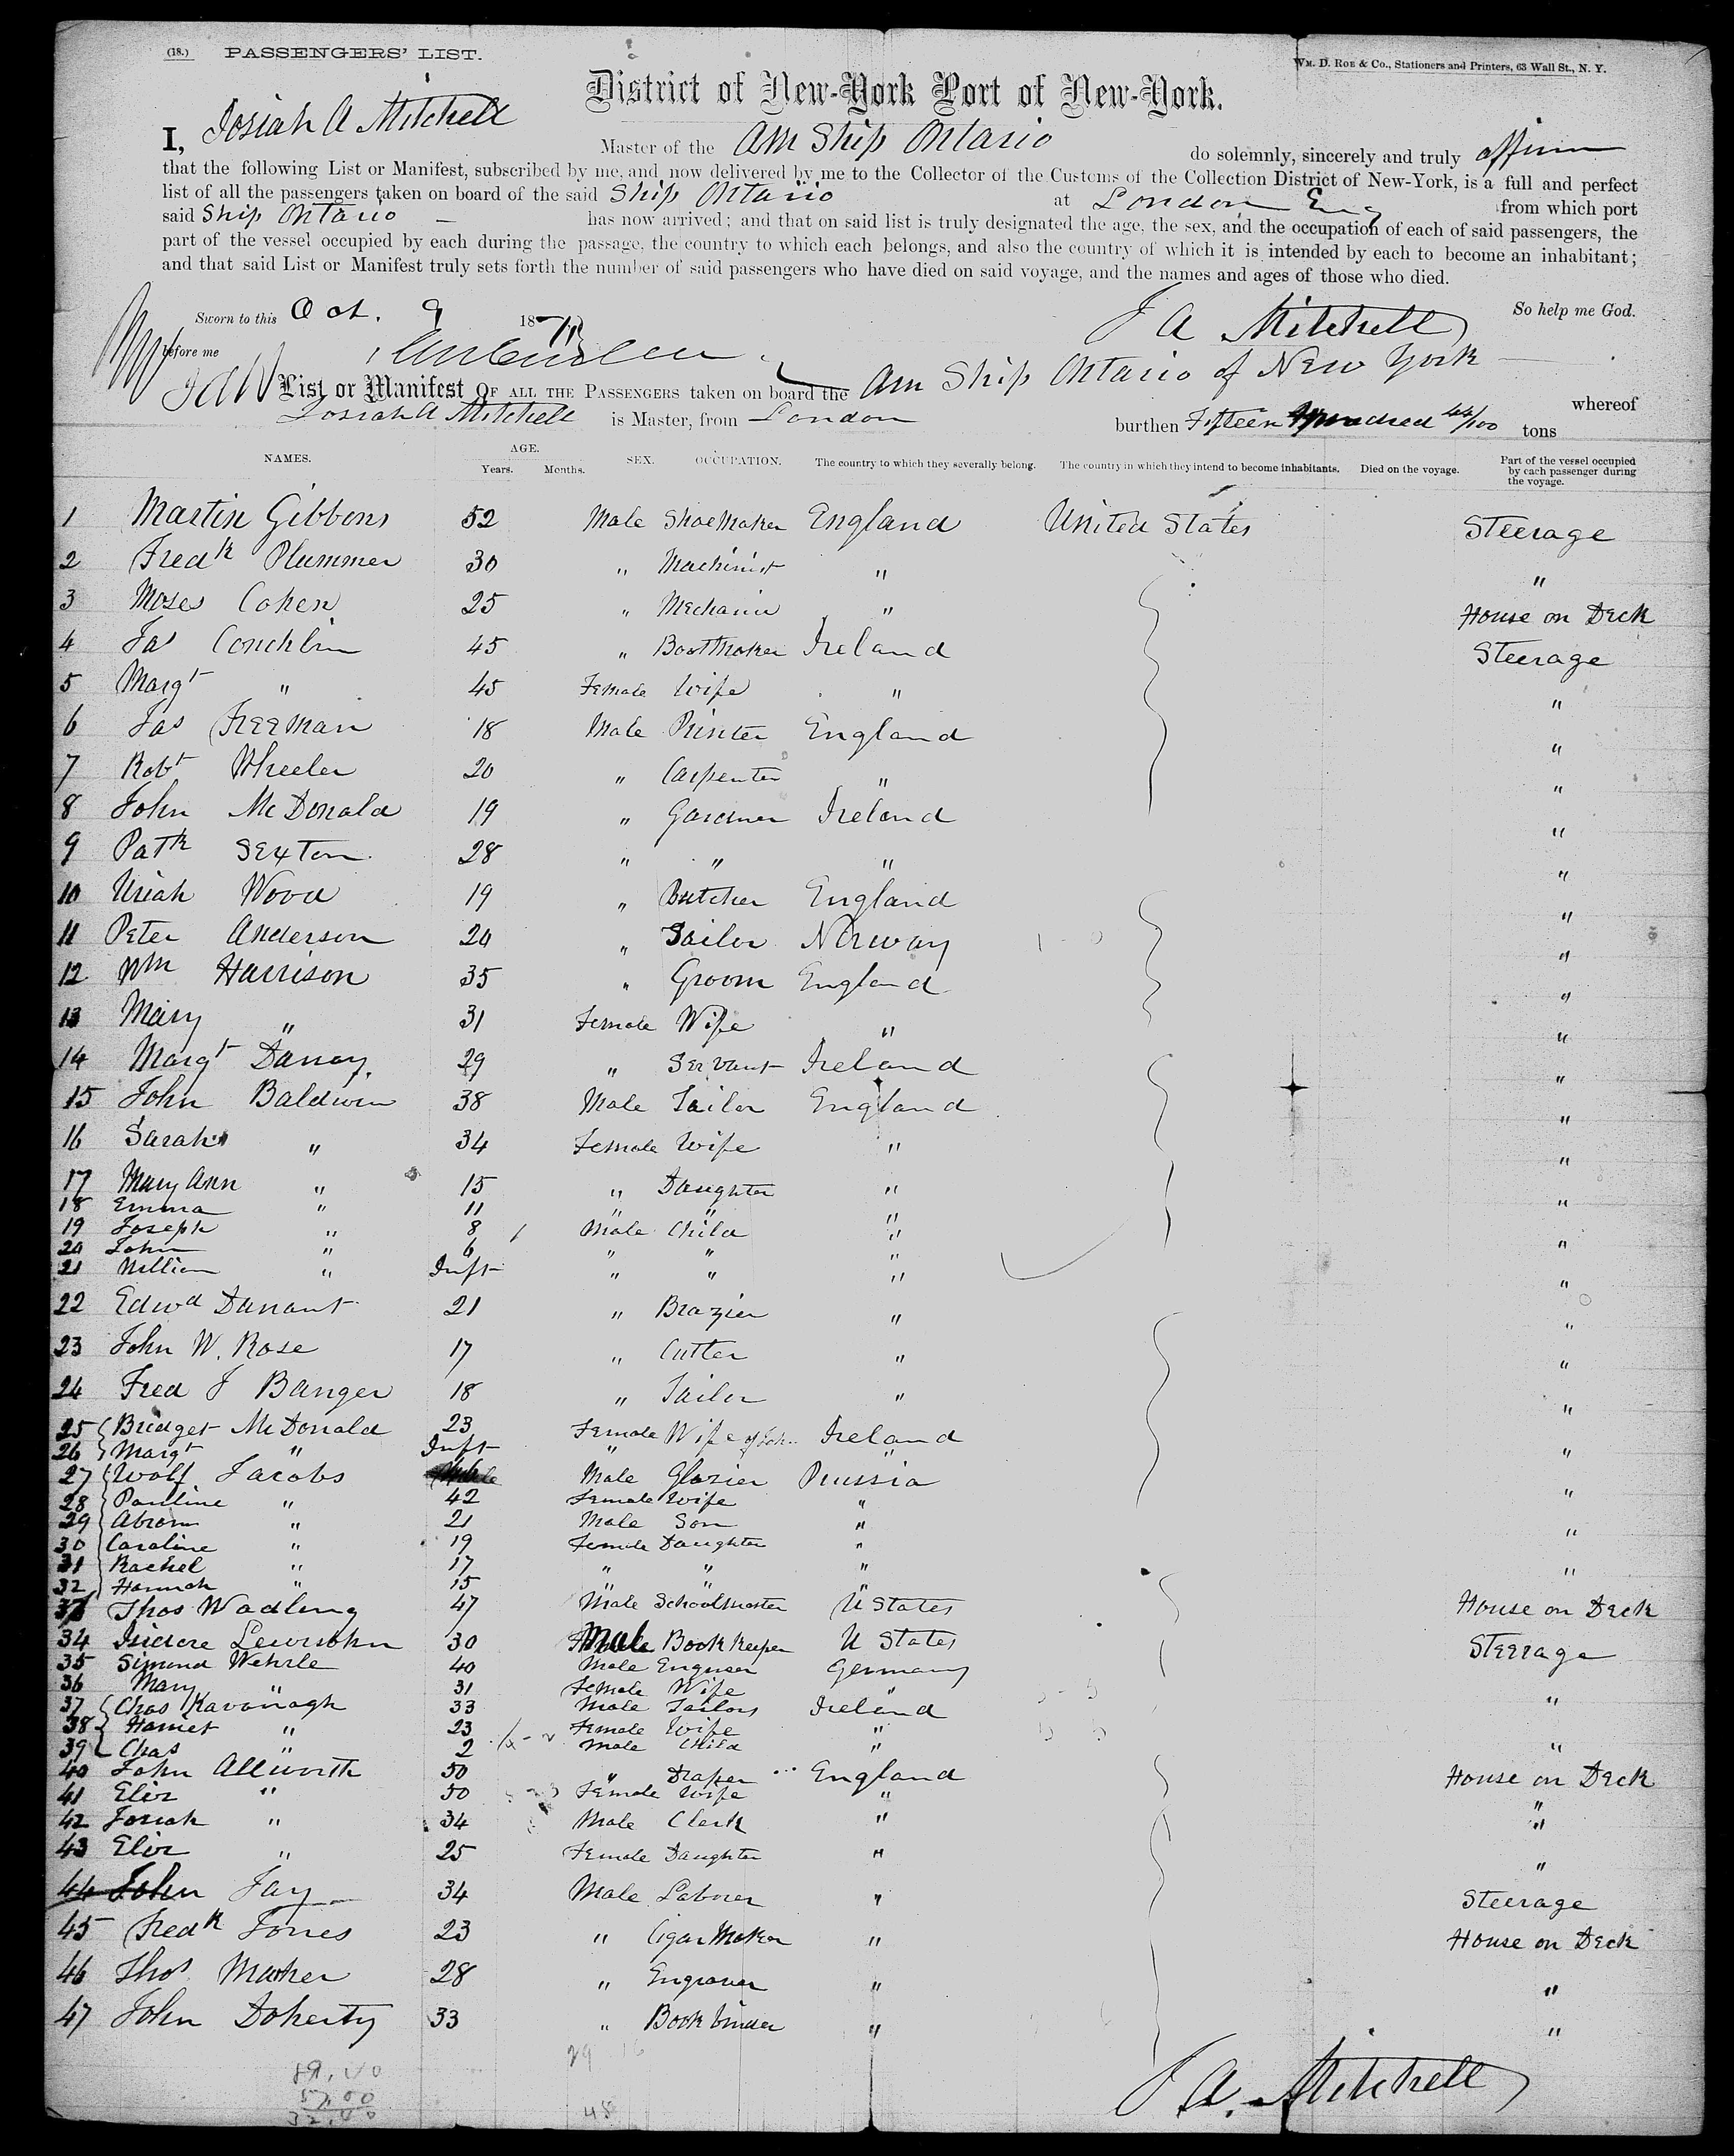 (18.) PASSENGERS' LIST.
Wm. D. Roe & Co., Stationers and Printers, 63 Wall St., N. Y.
District of New-York Port of New-York.
I, Josiah A Mitchell Master of the Am Ship Ontario do solemnly, sincerely and truly affirm
that the following List or Manifest, subscribed by me, and now delivered by me to the Collector of the Customs of the Collection District of New-York, is a full and perfect
list of all the passengers taken on board of the said Ship Ontario at London Eng from which port
said Ship Ontario has now arrived; and that on said list is truly designated the age, the sex, and the occupation of each of said passengers, the
part of the vessel occupied by each during the passage, the country to which each belongs, and also the country of which it is intended by each to become an inhabitant;
and that said List or Manifest truly sets forth the number of said passengers who have died on said voyage, and the names and ages of those who died.
So help me God.
Sworn to this Oct. 9 18
J A Mitchell
before me
List or Manifest OF ALL THE PASSENGERS taken on board the Am Ship Ontario of New York whereof
Josiah A Mitchell is Master, from London burthen Fifteen Hundred 44/100 tons
NAMES. AGE. Years. Months. SEX. OCCUPATION. The country to which they severally belong. The country in which they intend to become inhabitants. Died on the voyage. Part of the vessel occupied by each passenger during the voyage.
1 Martin Gibbons 52 Male Shoemaker England United States Steerage
2 Fredk Plummer 30 " Machinist " "
3 Moses Cohen 25 " Mechanic " House on Deck
4 Jas Conchlin 45 " Bootmaker Ireland Steerage
5 Margt " 45 Female Wife " "
6 Jas Freeman 18 Male Printer England "
7 Robt Wheeler 20 " Carpenter " "
8 John McDonald 19 " Gardner Ireland "
9 Patk Sexton 28 " " " "
10 Uriah Wood 19 " Butcher England "
11 Peter Anderson 20 " Sailor Norway "
12 Wm Harrison 35 " Groom England "
13 Mary " 31 Female Wife " "
14 Margt 29 " Servant Ireland "
15 John Baldwin 38 Male Tailor England "
16 Sarah " 34 Female Wife " "
17 Mary Ann " 15 " Daughter " "
18 Emma " 11 " " "
19 Joseph " 8 Male Child "
20 John " 6 " " " "
21 William " Inft " " " "
22 Edwd 21 " Brazier " "
23 John W. Rose 17 " Cutter " "
24 Fred J Banger 18 " Tailor " "
25 Bridget McDonald 23 Female Wife of Joh Ireland
26 Margt " Inft " " "
27 Wolf Jacobs Male Glazier Prussia
28 Pauline " 42 Female Wife " "
29 Abrom " 21 Male Son "
30 Caroline " 19 Female Daughter " "
31 Rachel " 17 " " "
32 Hannah " 15 " " " "
33 Thos Wadling 47 Male Schoolmaster U States House on Deck
34 Isidore Lewisohn 30 Male Book Keeper U States Steerage
35 Simond Wehrle 40 Male Germany
36 Mary " 31 Female Wife "
37 Chas Kavanagh 33 Male Tailors Ireland "
38 Harriet " 23 Female Wife "
39 Chas " 2 Male Child " "
40 John Allworth 50 " Draper England House on Deck
41 Eliz " 50 Female Wife " "
42 Josiah " 34 Male Clerk " "
43 Eliz " 25 Female Daughter " "
44 John Jay 34 Male Laborer " Steerage
45 Fredk Jones 23 " Cigar Maker " House on Deck
46 Thos 28 " Engraver " "
47 John Doherty 33 " Book binder " "
J. A. Mitchell